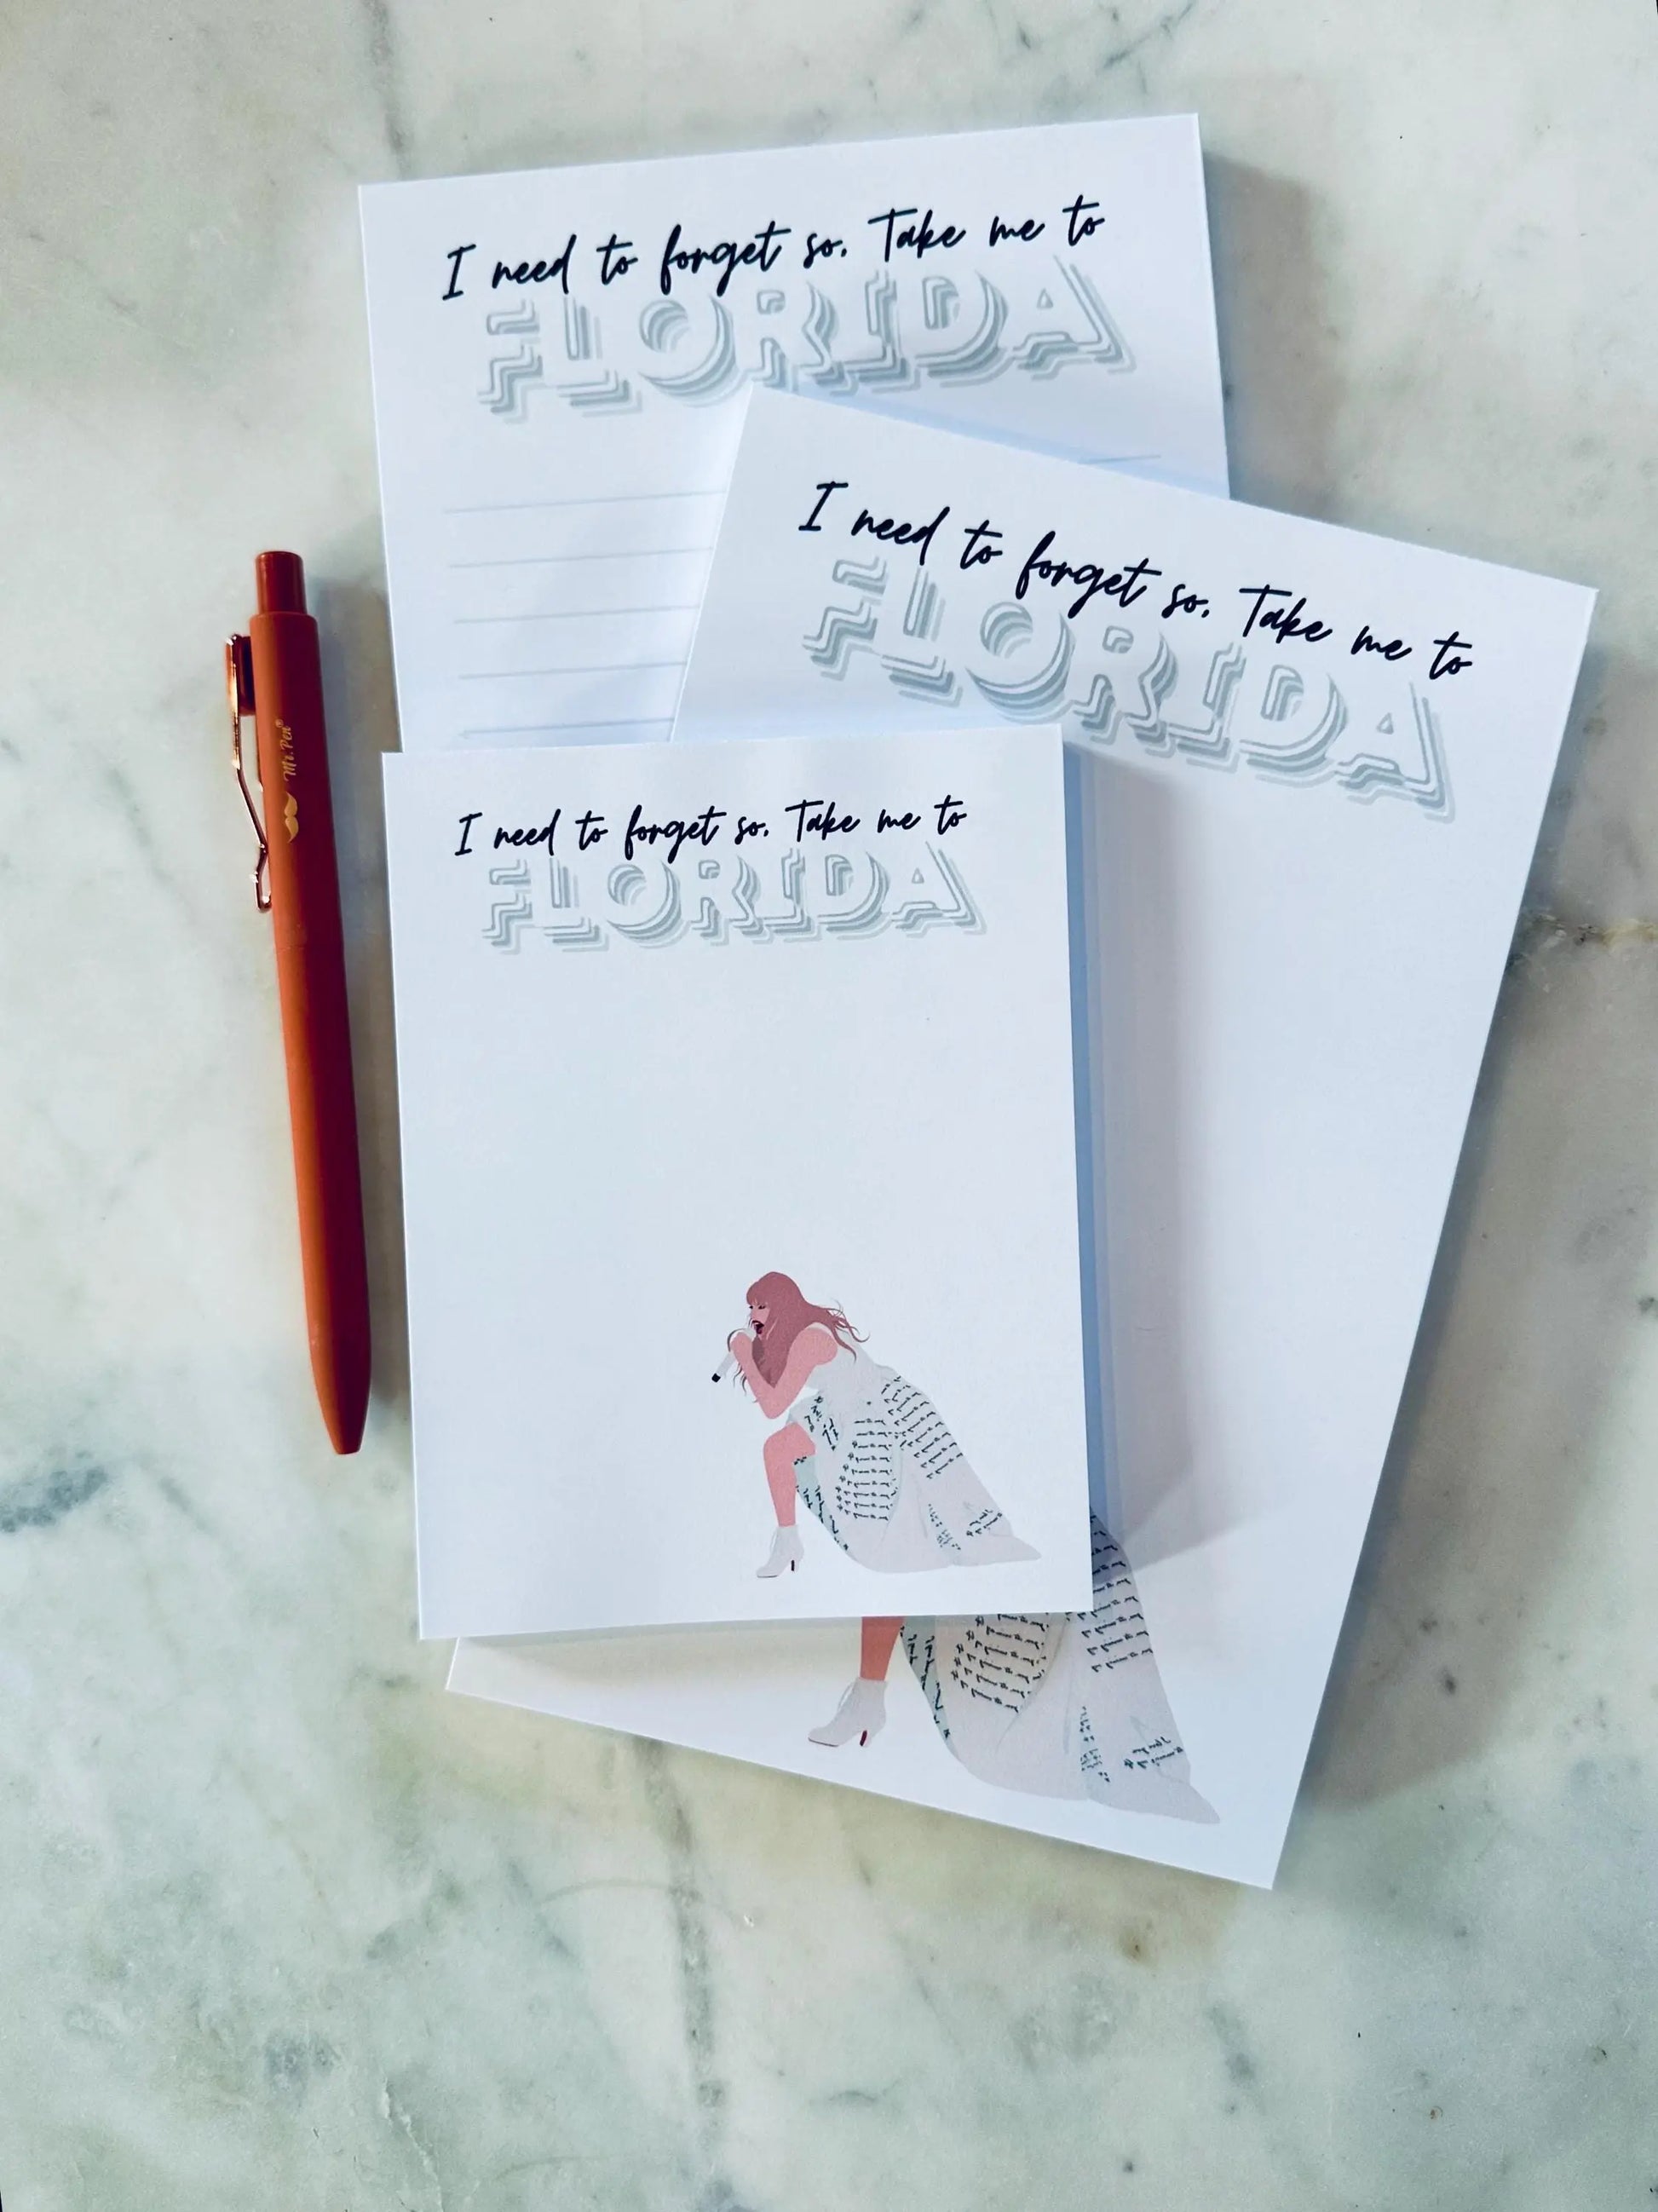 I need to forget so. Take me to
FLORIDA
I need to forget so. Take me to
FLORIDA
Mr. Pen®
I need to forget so. Take me to
FLORIDA